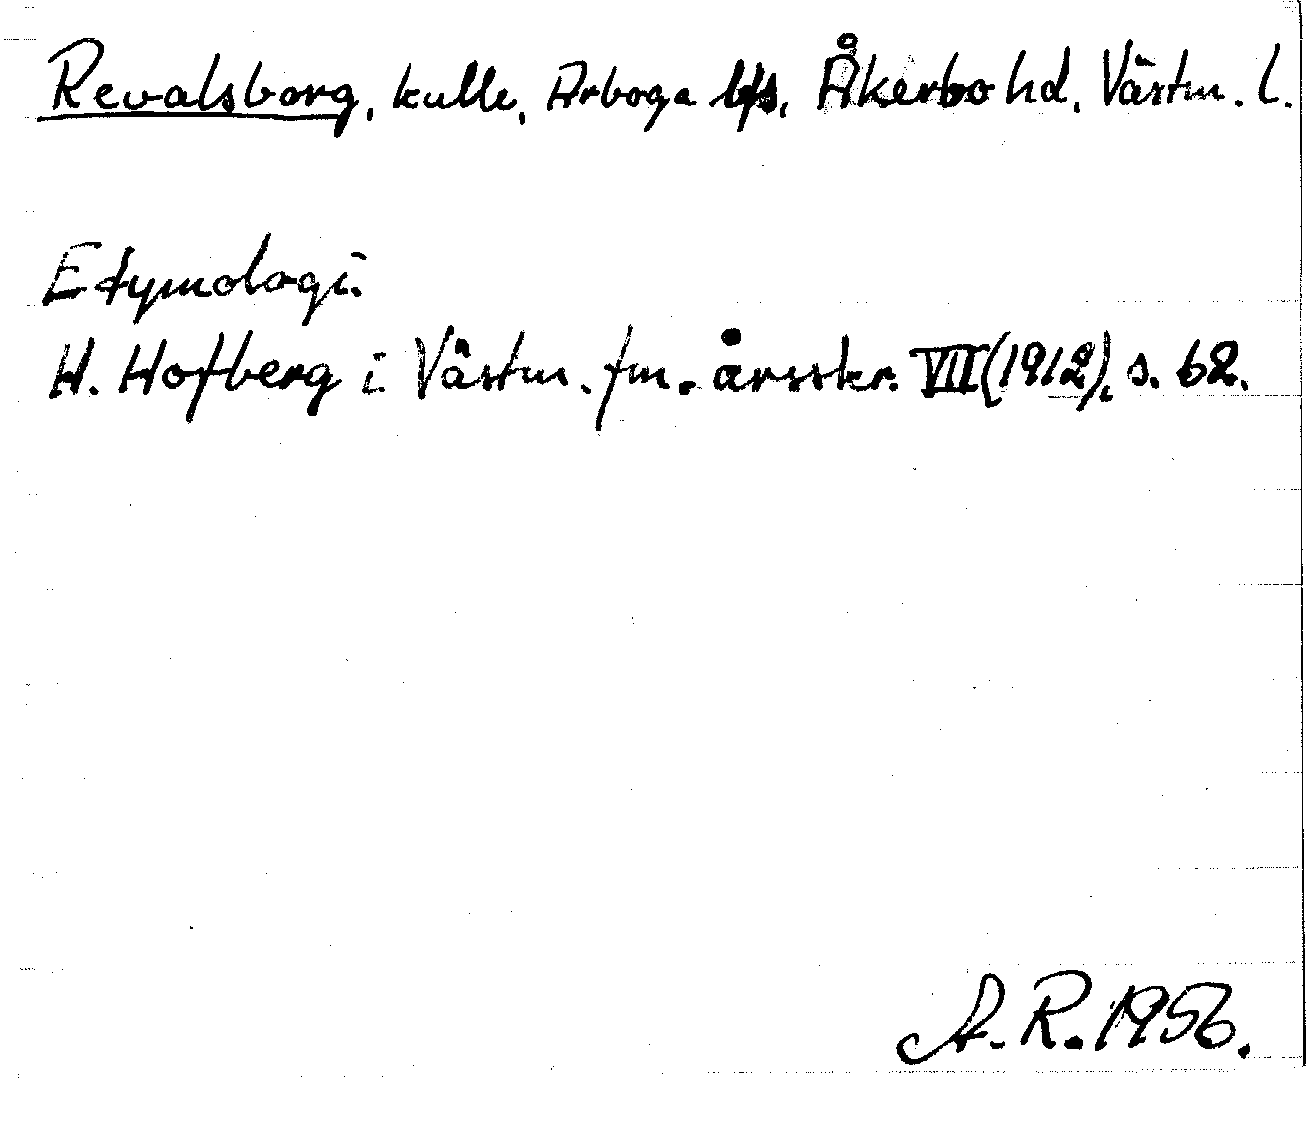 Revalsborg, kulle, Arboga lfs, Åkerbo hd, Västm. l.
Etymologi.
H. Hofberg i Västm. fm. årsskr. VII (1912), s. 62.
A. R. 1956.